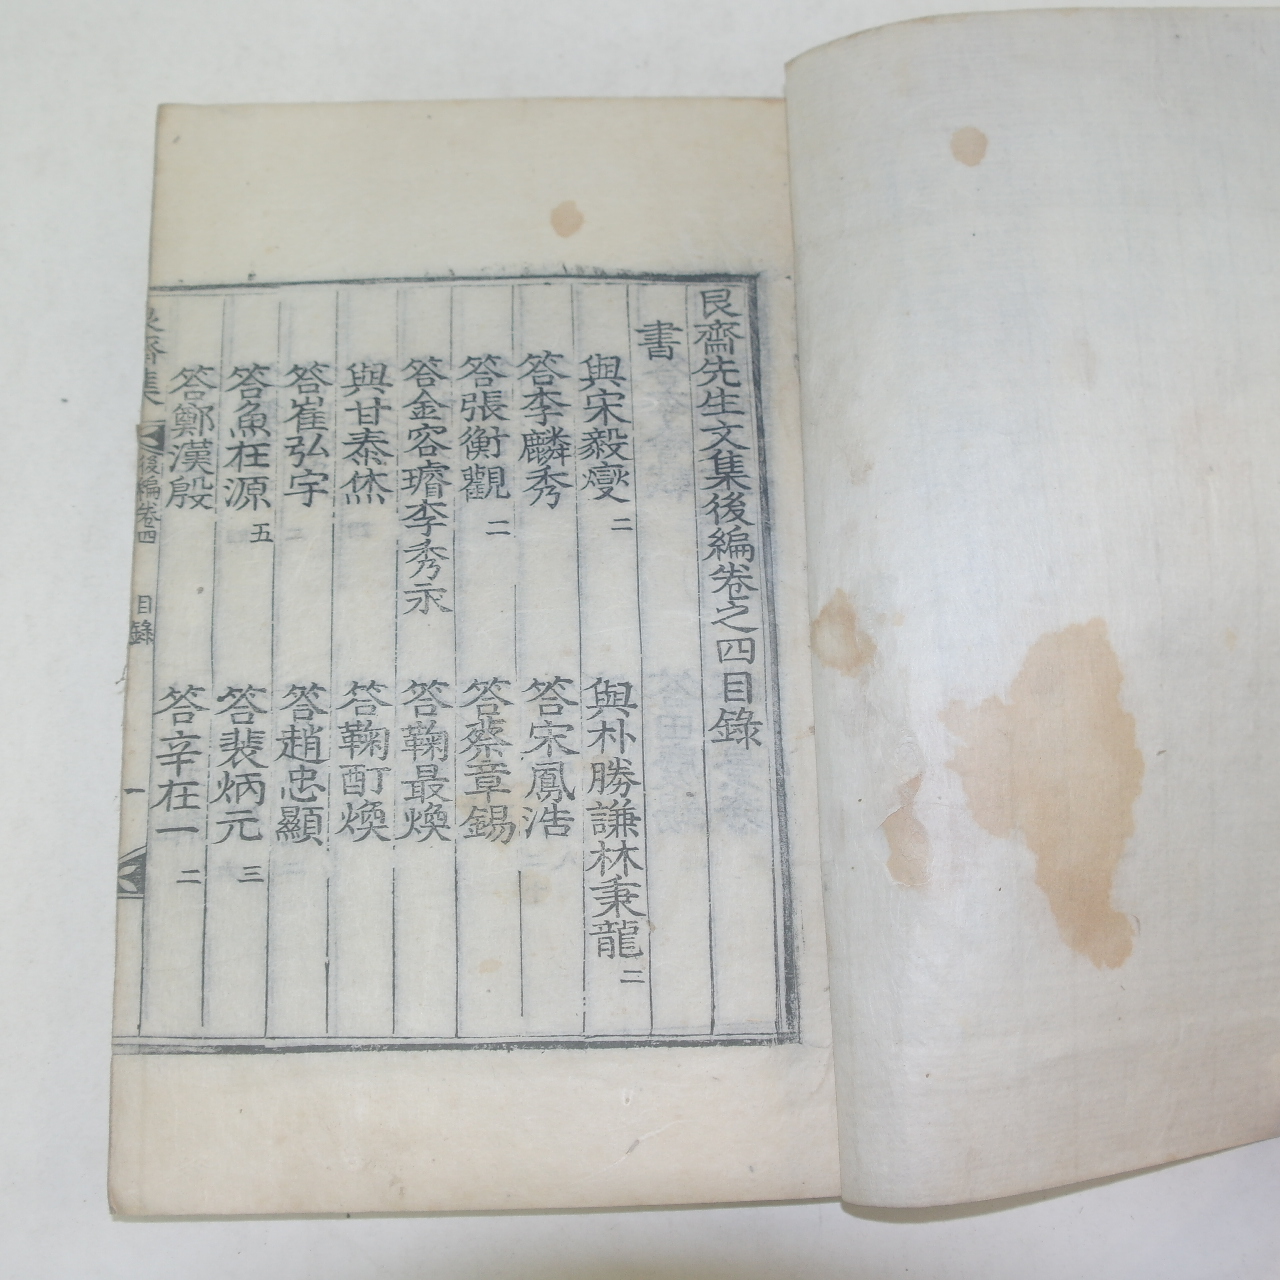 艮齋先生文集後編卷之四目錄
書
與宋毅燮 二
與朴勝謙林秉龍 二
答李麟秀
答宋鳳浩
答張衡觀 二
答蔡章錫
答金容璿李秀永
答鞠最煥
與甘泰烋
答鞠酊煥
答崔弘宇
答趙忠顯
答魚在源 五
答裴炳元 三
答鄭漢殷
答辛在一 二
艮齋集 後編卷四 目錄 一